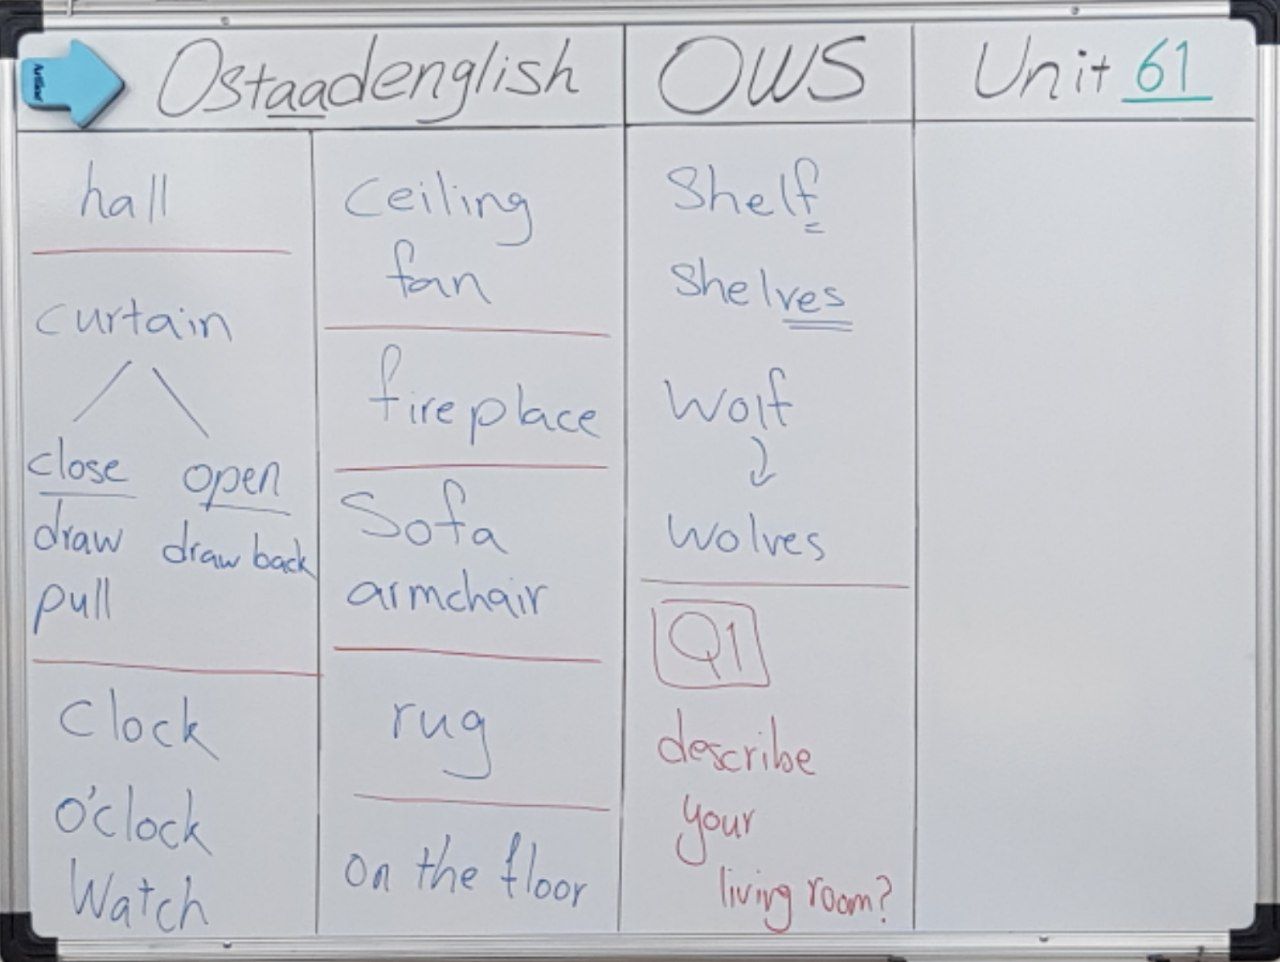 Ostaadenglish
OWS
Unit 61
hall
curtain
close open
draw draw back
pull
Clock
o'clock
Watch
Ceiling
fan
fireplace
Sofa
armchair
rug
on the floor
Shelf
Shelves
Wolf
Wolves
Q1
describe
your
living room?